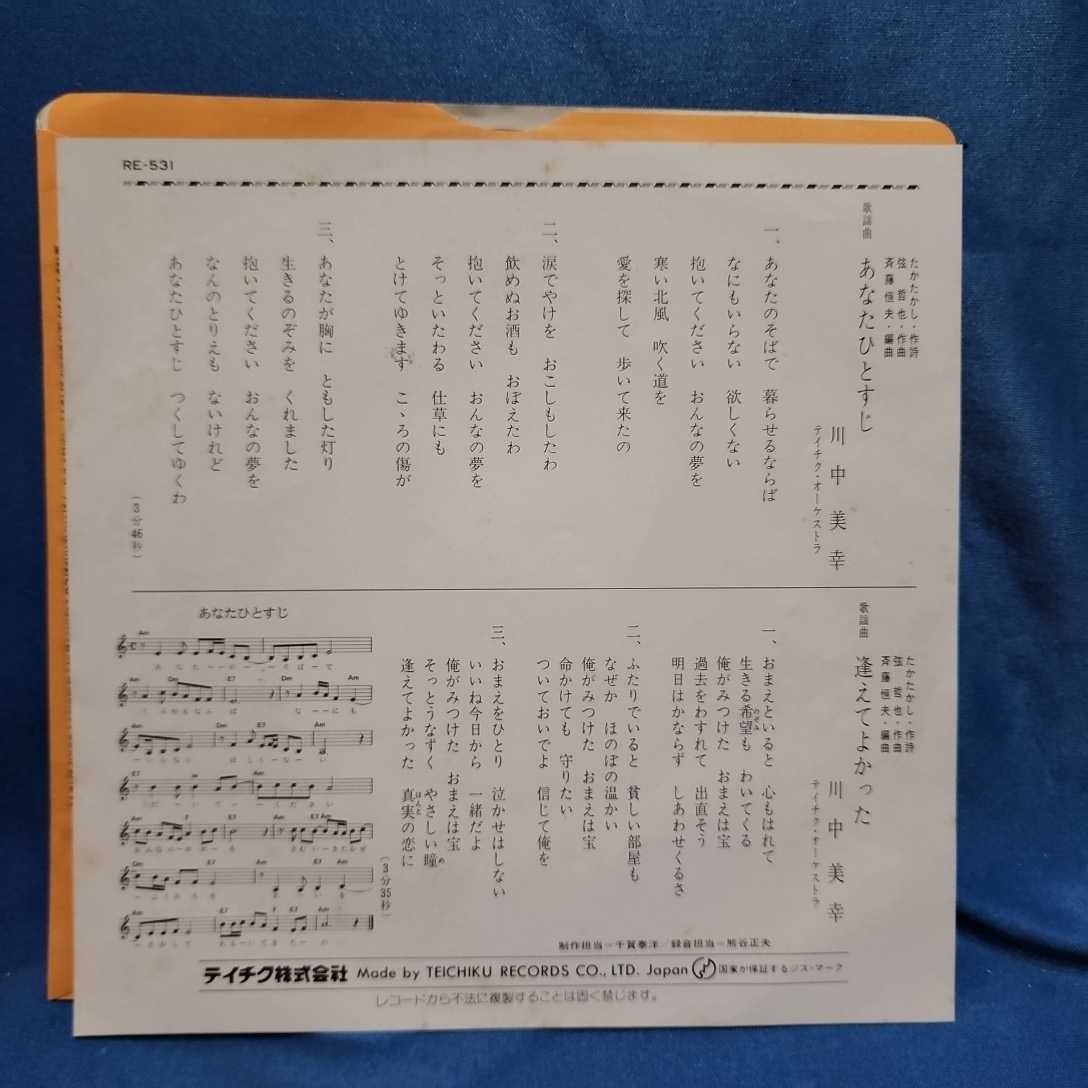 RE-531
歌謡曲
あなたひとすじ
たかたかし・作詩
弦哲也・作曲
斉藤恒夫・編曲
川中美幸
テイチク・オーケストラ
一、あなたのそばで 暮らせるならば
なにもいらない 欲しくない
抱いてください おんなの夢を
寒い北風 吹く道を
愛を探して 歩いて来たの
二、涙でやけを おこしもしたわ
飲めぬお酒も おぼえたわ
抱いてください おんなの夢を
そっといたわる 仕草にも
とけてゆきます こゝろの傷が
三、あなたが胸に ともした灯り
生きるのぞみを くれました
抱いてください おんなの夢を
なんのとりえも ないけれど
あなたひとすじ つくしてゆくわ
(3分46秒)
歌謡曲
逢えてよかった
たかたかし・作詩
弦哲也・作曲
斉藤恒夫・編曲
川中美幸
テイチク・オーケストラ
一、おまえといると 心もはれて
生きる希望も わいてくる
のぞみ
俺がみつけた おまえは宝
過去をわすれて 出直そう
明日はかならず しあわせくるさ
二、ふたりでいると 貧しい部屋も
なぜか ほのぼの温かい
俺がみつけた おまえは宝
命かけても 守りたい
ついておいでよ 信じて俺を
三、おまえをひとり 泣かせはしない
いいね今日から 一緒だよ
俺がみつけた おまえは宝
そっとうなずく やさしい瞳
め
逢えてよかった 真実の恋に
ほんと
(3分35秒)
あなたひとすじ
制作担当=千賀泰洋/録音担当=熊谷正夫
テイチク株式会社 Made by TEICHIKU RECORDS CO., LTD. Japan 国家が保証するジス・マーク
レコードから不法に複製することは固く禁じます。